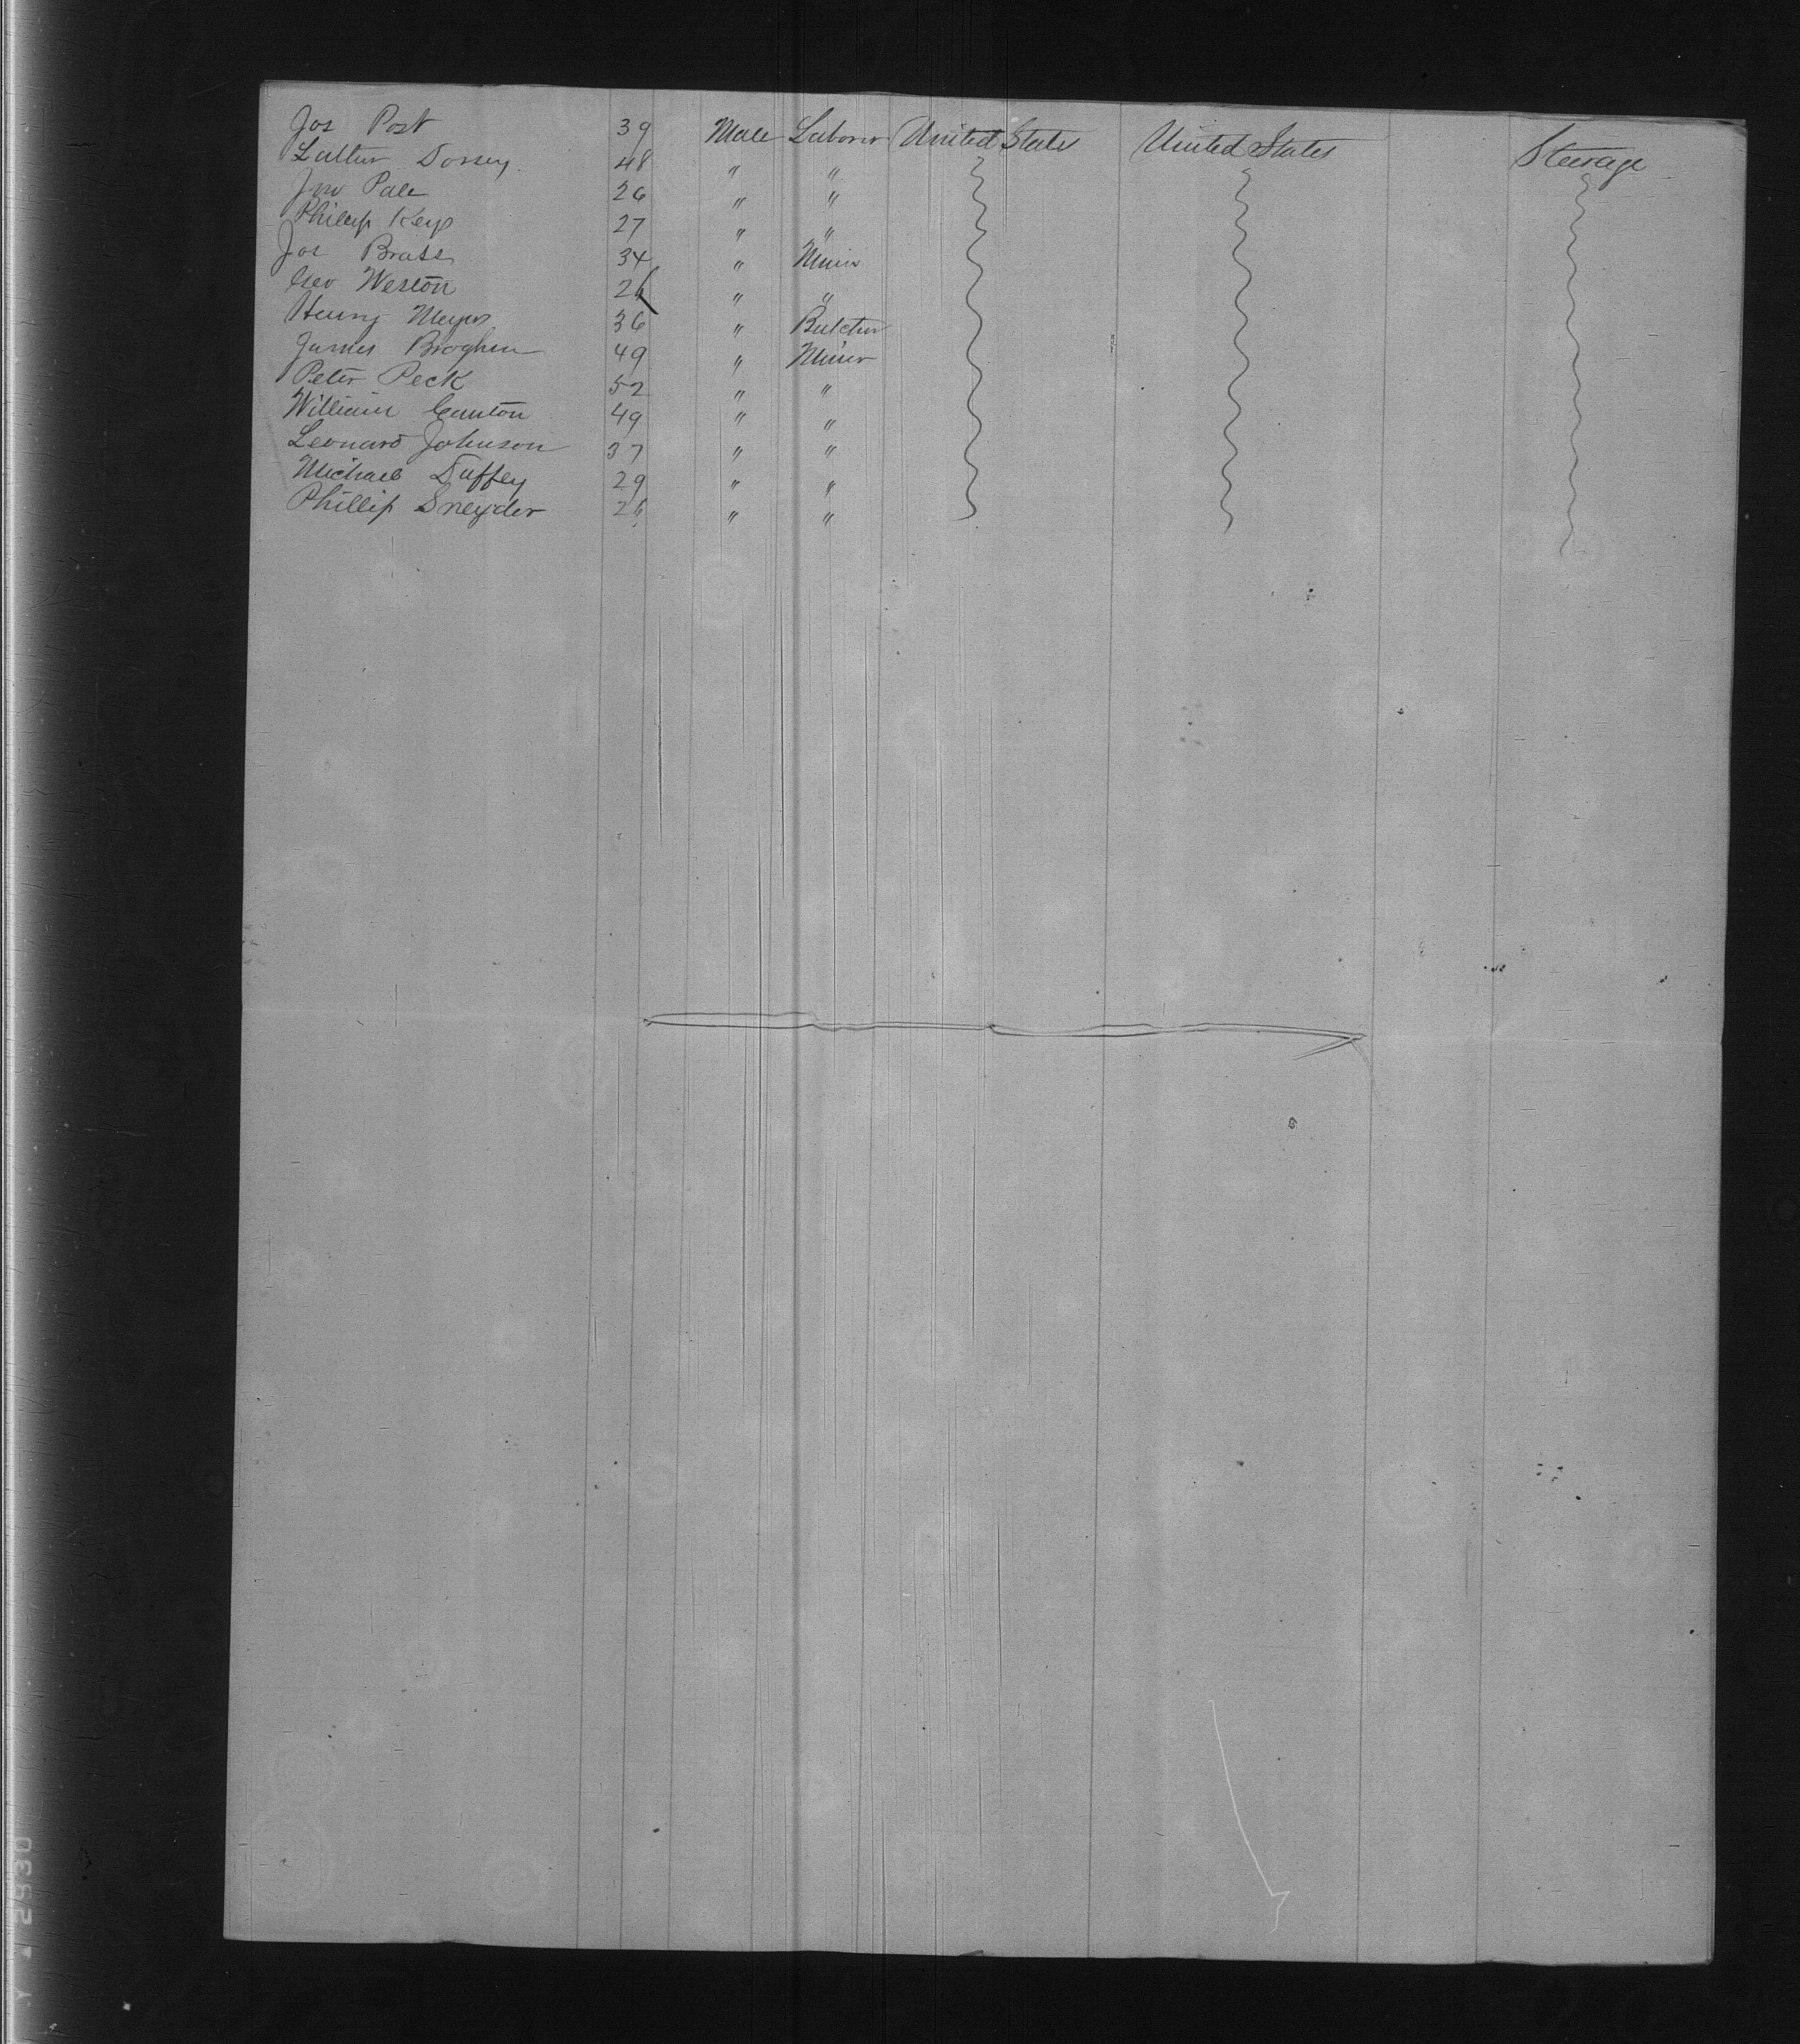 Jos Post 39 Male Laborer United States United States Steerage
Luther Dorsey 48 " "
Jno Pale 26 " "
Philip Keys 27 " "
Jos Brass 34 " Miner
Geo Weston 26 " "
Henry Meyers 36 " Butcher
James 49 " Miner
Peter Peck 52 " "
William Canton 49 " "
Leonard Johnson 37 " "
Michael Duffey 29 " "
Phillip Sneyder 26 " "